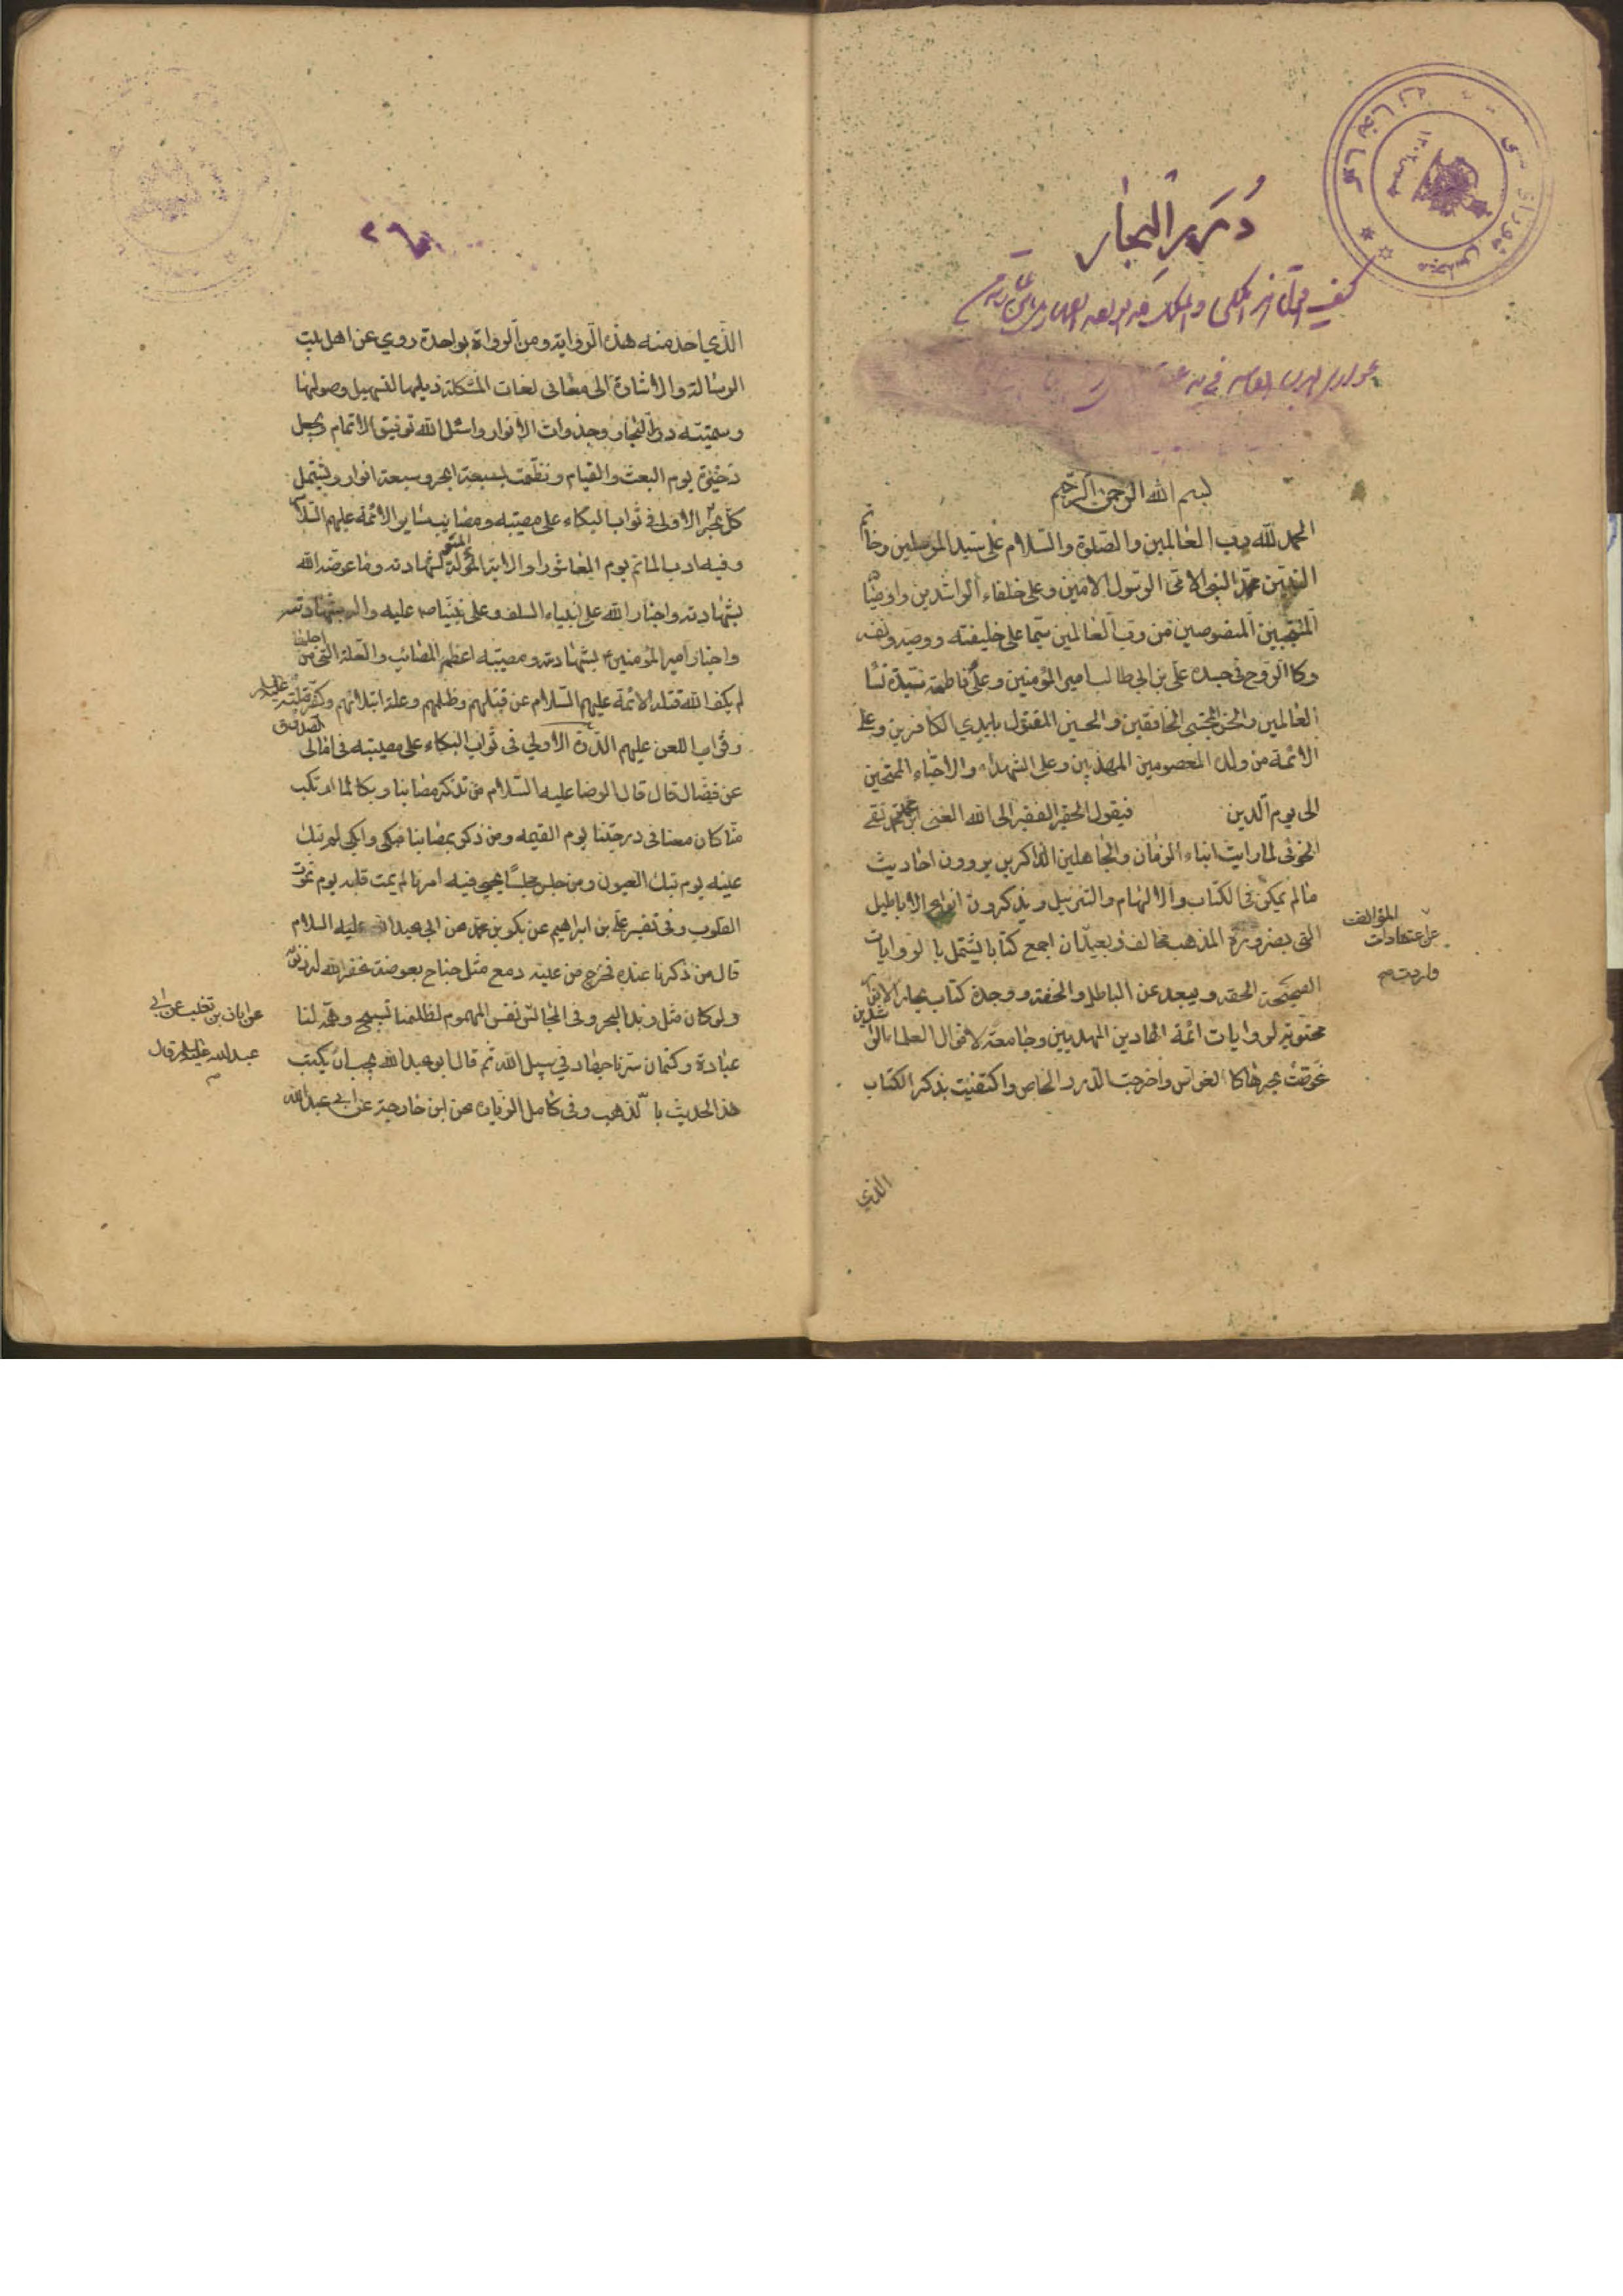 درر البحار
بسم الله الرحمن الرحیم
الحمد لله رب العالمین والصلوة والسلام علی سید المرسلین وخاتم
النبیین محمد النبی الامی الرسول الامین وعلی خلفاء الراشدین واوصیا
المنتجبین المنصوصین من رب العالمین سیما علی خلیفته ووصیه ونفسه
وکالروح فی جسده علی بن ابی طالب امیر المؤمنین وعلی فاطمة سیدة نسا
العالمین والحسن المجتبی الخافقین والحسین المقتول بایدی الکافرین وعلی
الائمة من ولده المعصومین المهذبین وعلی الشهداء والاحباء الممتحنین
الی یوم الدین فیقول الحقیر الفقیر الی الله الغنی ابن محمد تقی
الخوئی لما رایت ابناء الزمان والجاهلین الذاکرین یروون احادیث
مالم یمکن فی الکتاب والالهام والتنزیل ویذکرون انواع الاباطیل
التی بضرورة المذهب مخالف وبعید ان اجمع کتابا یشتمل بالروایات
الصحیحة الحقه ویبعد عن الباطل والخفة ووجدة کتاب بحار الانوار
محتویة لروایات ائمة الهادین المهدیین وجامعة لاقوال العلماء الراشدین
غوصت بحرها کالغواص واخرجت الدرر الخاص واکتفیت بذکر الکتاب
المؤلف
علی اعتقادات
واردت م
الذی
الذی اخذ منه هذه الروایة ومن الرواة بواحدة روی عن اهل بیت
الرسالة والاشارة الی معانی لغات المشکلة ذیلها لتسهیل وصولها
وسمیته درر البحار وجذوات الانوار واسئل الله توفیق الاتمام ویجعل
ذخیرة یوم البعث والقیام ونظمت بسبعة ابحر وسبعة انوار ویشتمل
کل بحر الاولی فی ثواب البکاء علی مصیبته ومصائب سایر الائمة علیهم السلام
وفیه ادب الماتم یوم العاشورا والایة المؤلة لشهادته وما عوضه الله
بشهادته واخبار الله علی انبیاء السلف وعلی نبینا ص علیه واله بشهادته
واخبار امیر المؤمنین بشهادته ومصیبته اعظم المصائب والعلة التی من اجلها
لم یکف الله قتلة الائمة علیهم السلام عن قتلهم وظلمهم وعلة ابتلائهم وکفر قتلته علیه السلام
وثواب اللعن علیهم الدرة الاولی فی ثواب البکاء علی مصیبته فی امالی الصدوق
عن فضال قال قال الرضا علیه السلام من تذکر مصابنا وبکا لما ارتکب
منا کان معنا فی درجتنا یوم القیمه ومن ذکر بمصابنا فبکی وابکی لم تبک
عینه یوم تبک العیون ومن جلس مجلسا یحیی فیه امرنا لم یمت قلبه یوم تموت
القلوب وفی تفسیر علی بن ابراهیم عن بکر بن محمد عن ابی عبدالله علیه السلام
قال من ذکرنا عنده فخرج من عینه دمع مثل جناح بعوضة غفر الله له ذنوبه
ولو کان مثل زبد البحر وفی المجالس نفس المهموم لظلمنا تسبیح وهمه لنا
عبادة وکتمان سرنا جهاد فی سبیل الله ثم قال ابو عبدالله یجب ان یکتب
هذا الحدیث بالذهب وفی کامل الزیارة عن ابن خارجة عن ابی عبدالله
عن ابان بن تغلب عن ابی
عبدالله علیه السلام قال
م